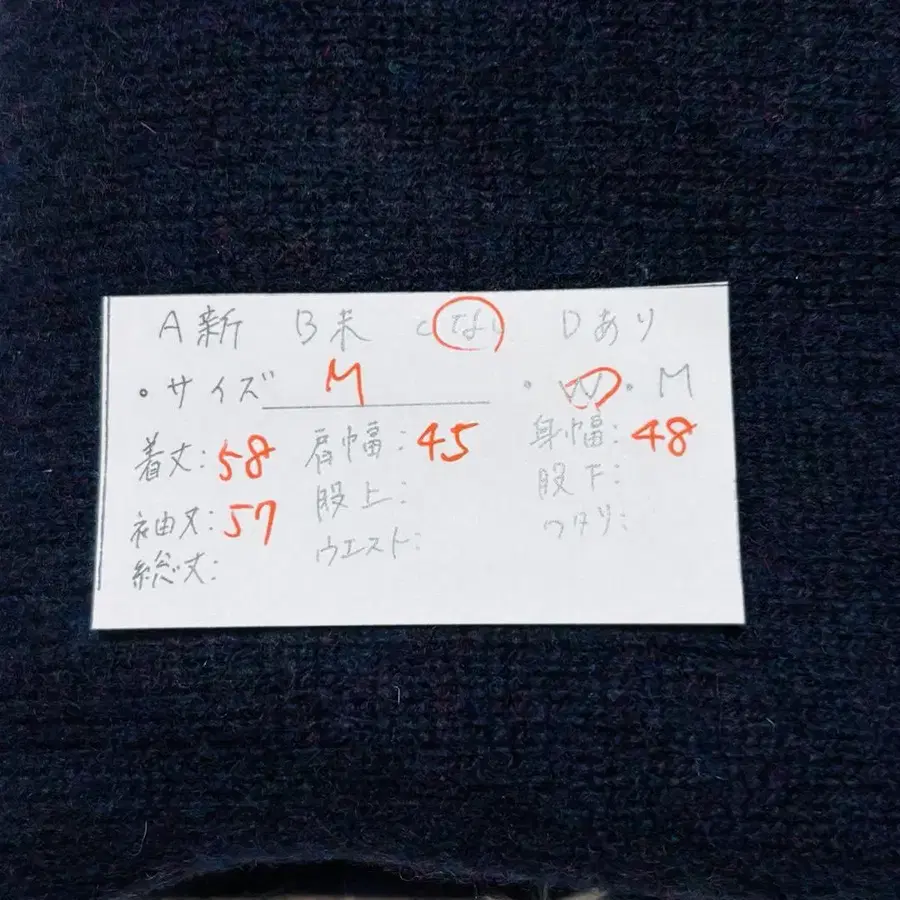 A新 B未 Cなし Dあり
・サイズ M ・W・M
着丈:58 肩幅:45 身幅:48
袖丈:57 股上: 股下:
総丈: ウエスト: ワタリ: